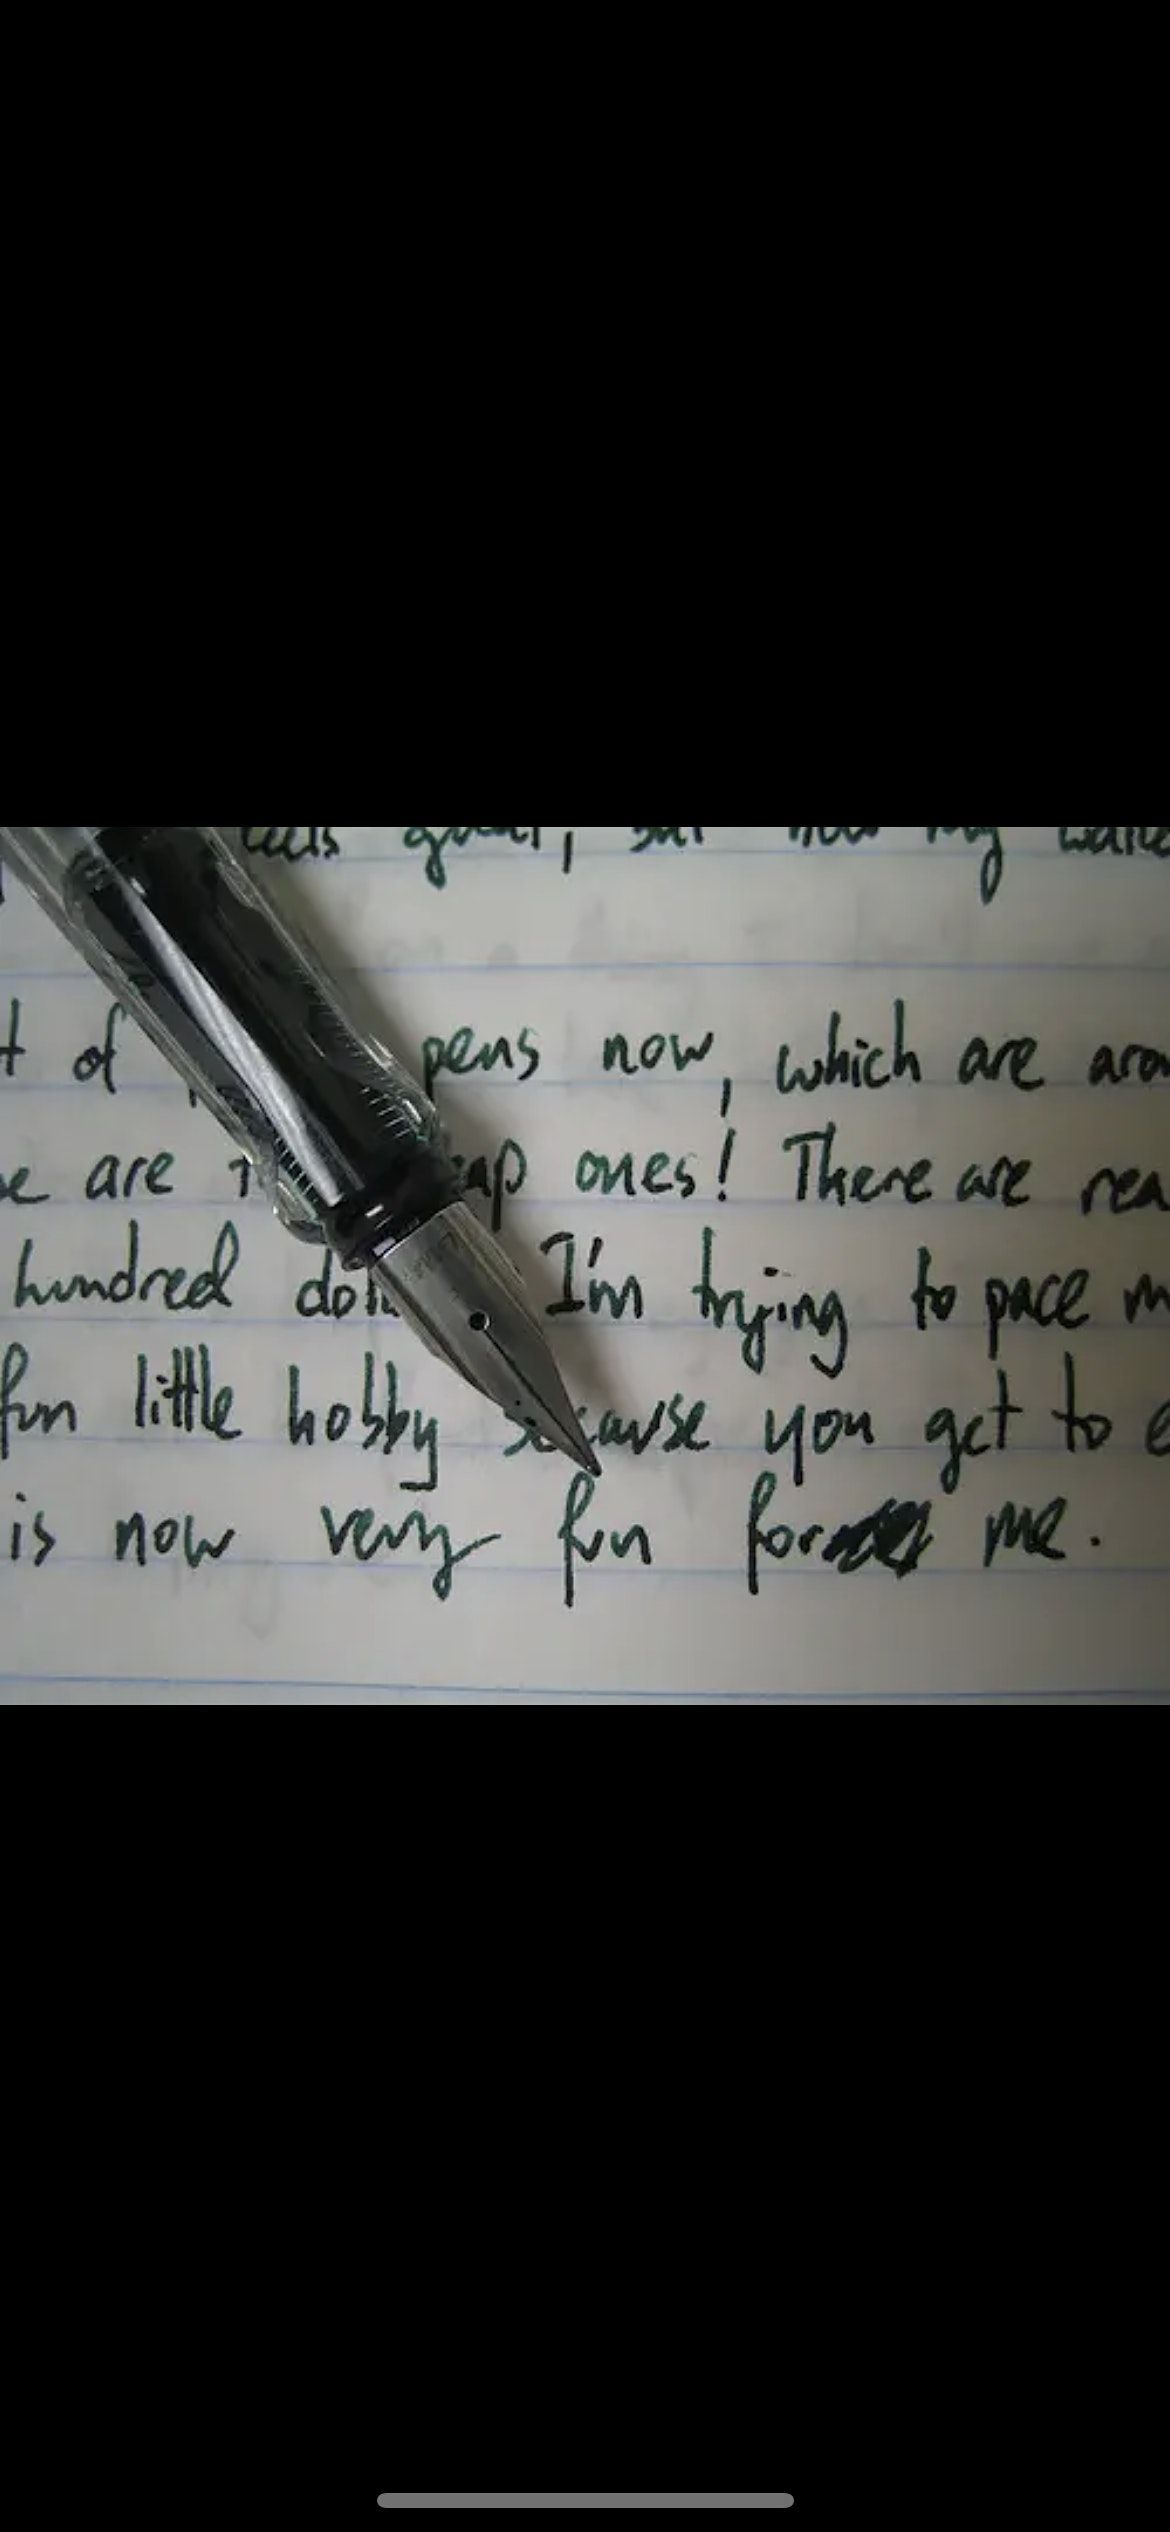 feels great, but now my
of pens now, which are
are ones! There are
hundred I'm trying to pace
fun little hobby because you get to
is now very fun for me.